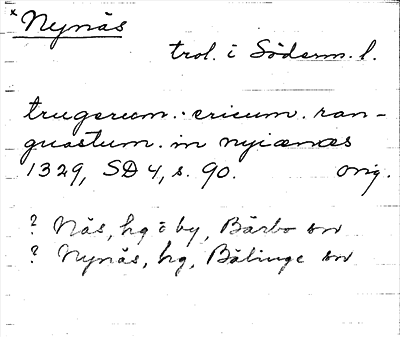 * Nynäs
trol. i Söderm. l.
trugerum . ericum . ran-
guastum . in nyiænæs
1329, SD 4, s. 90. orig.
? Näs, hg o by, Bärbo sn
? Nynäs, hg, Bälinge sn